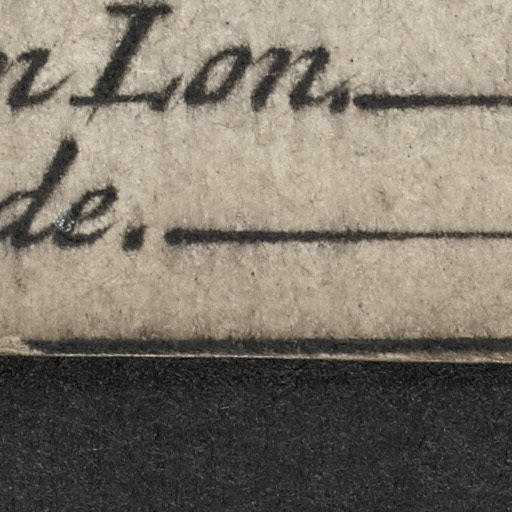 n Lon.
de.